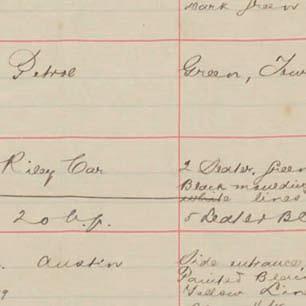 Dark green
Petrol Green,
Riley Car 2 Seater, green
Black moulding
white lines
20 h.p. 5 Seater Bl
Austin Side entrance,
Painted Black
Yellow Lin